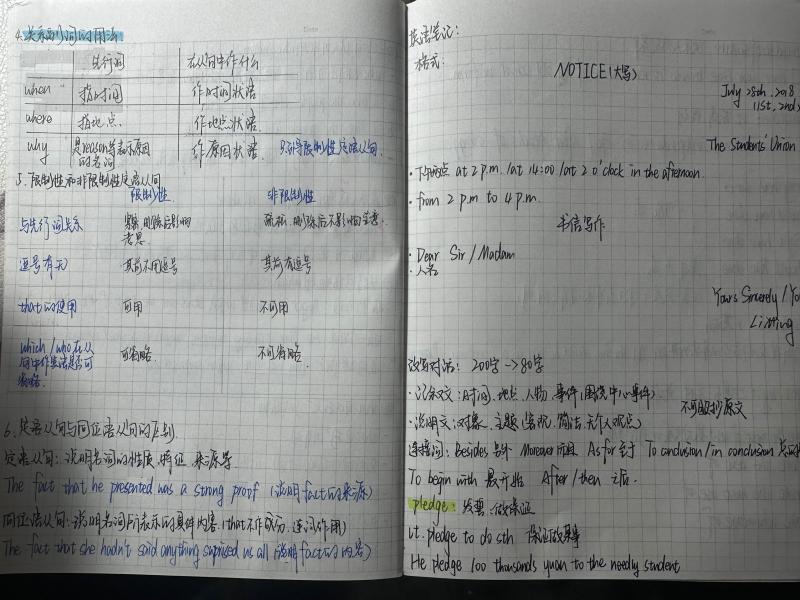 4. 关系副词的用法
先行词 在从句中作什么
when 指时间 作时间状语
where 指地点 作地点状语
why 是reason等表示原因的名词 作原因状语 只引导限制性定语从句
5. 限制性和非限制性定语从句
限制性 非限制性
与先行词关系 紧密,删除后影响 疏松,删除后不影响主意.
逗号有无 其前不用逗号 其前有逗号
that的使用 可用 不可用
which/who在从句中作宾语是否可省略 可省略 不可省略
6. 定语从句与同位语从句的区别
定语从句:说明名词的性质、特征、来源等
The fact that he presented was a strong proof (说明fact的来源)
同位语从句:说明名词所表示的具体内容. (that不作成分,连词作用)
The fact that she hadn't said anything suprised us all (说明fact的内容)
英语笔记:
格式:
NOTICE (大写)
July 28th, 2018
(1st, 2nd
The Students' Union
· 下午两点 at 2 p.m. /at 14:00 /at 2 o'clock in the afternoon.
· from 2 p.m to 4 p.m.
书信写作
· Dear Sir / Madam
· 人名
Yours Sincerely /
Li
改写对话: 200字 -> 80字
· 记叙文:时间、地点、人物、事件(围绕中心事件)
不可照抄原文
· 说明文:对象、主题(客观、简洁、无个人观点)
连接词: Besides 另外 Moreover 而且 As for 至于 To conclusion / in conclusion
To begin with 最开始 After / then 之后.
pledge: 发誓、做保证
vt. pledge to do sth 保证做某事
He pledge 100 thousands yuan to the needly student